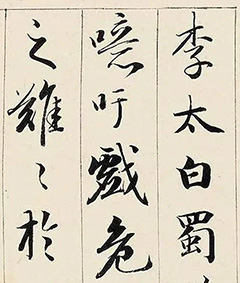 李太白蜀
噫吁戲危
之難〻於